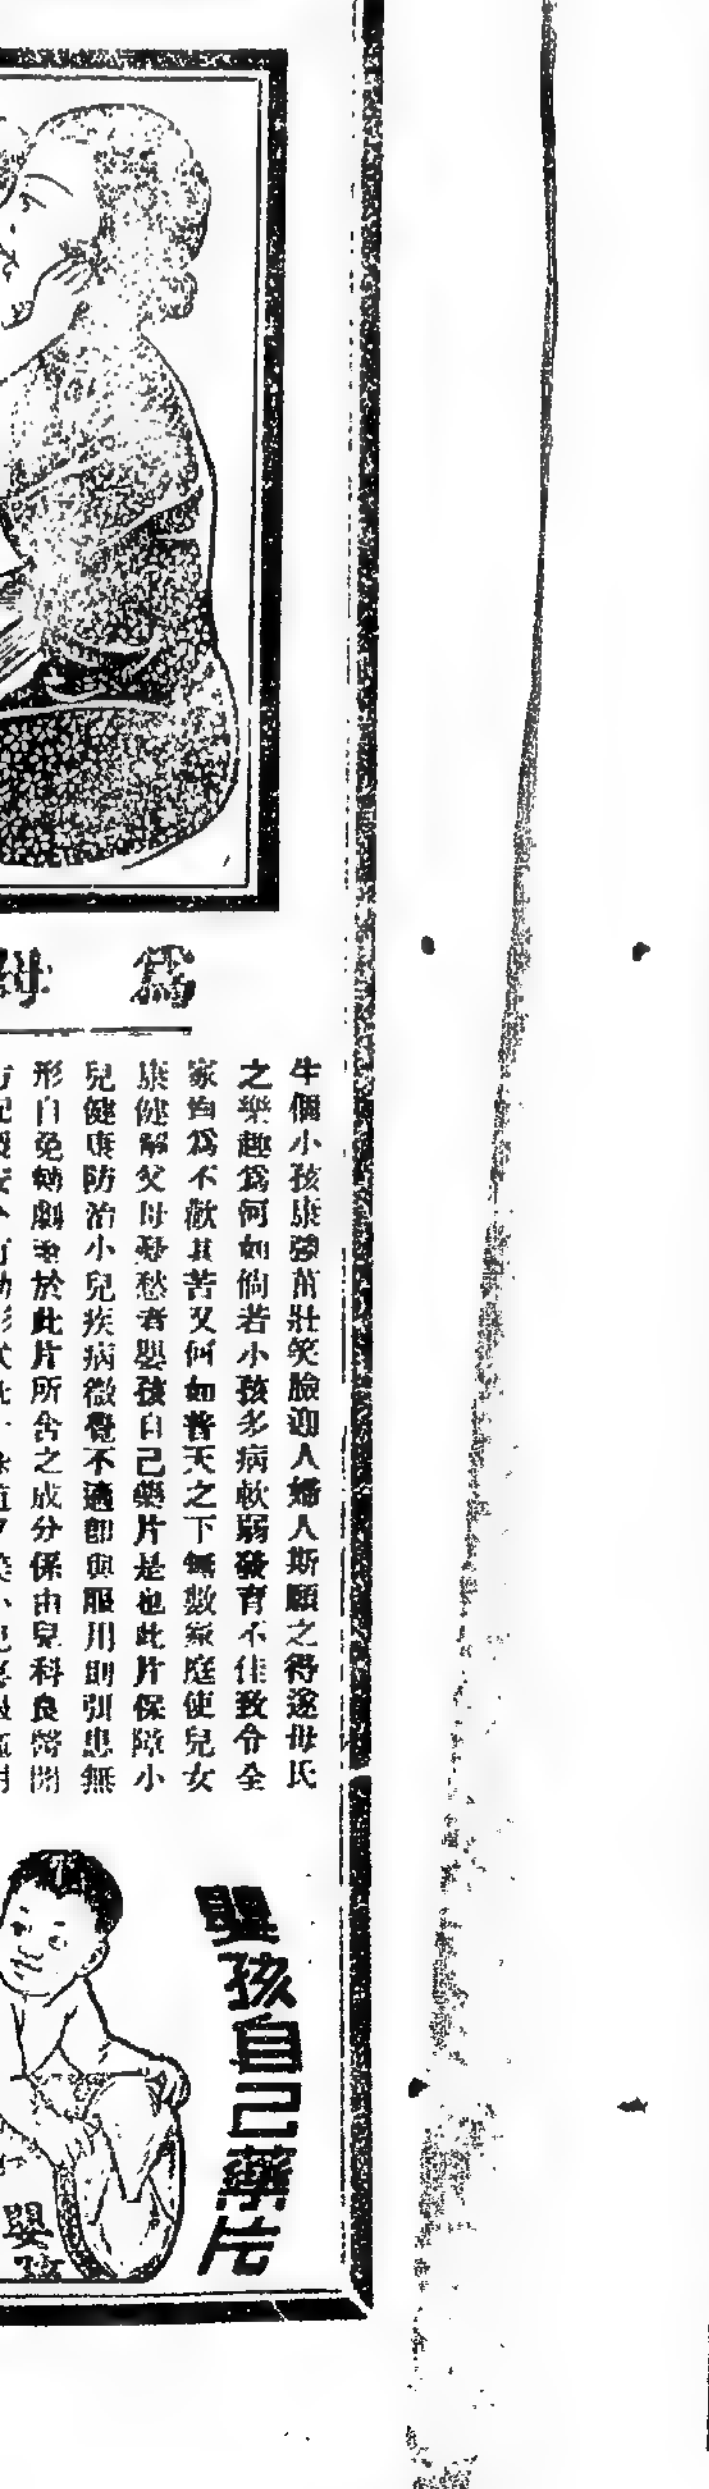 為母
生個小孩康強茁壯笑臉迎人婦人斯願之得遂母氏
之樂趣為何如倘若小孩多病軟弱發育不佳致令全
家皆為不歡其苦又何如普天之下無數家庭使兒女
康健解父母憂愁者嬰孩自己藥片是也此片保障小
兒健康防治小兒疾病微覺不適即與服用則引患無
形自免轉劇至於此片所含之成分係由兒科良醫開
嬰孩自己藥片
嬰孩